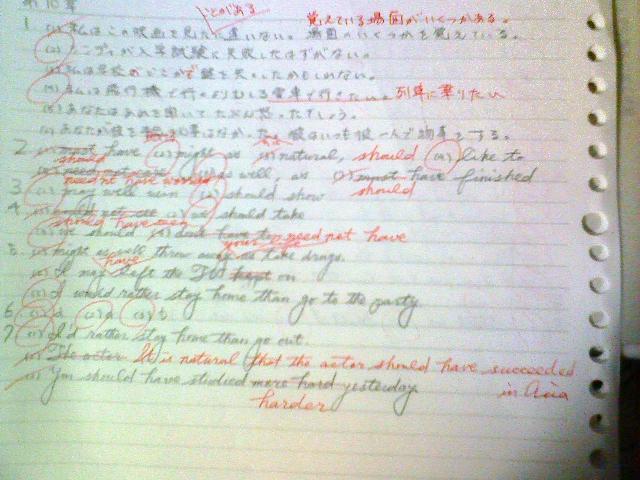 第10章
ことがある 覚えている場面がいくつかある。
1. (1) 私はこの映画を見た 違いない。場面のいくつかを覚えている。
(2) シンディが入学試験に失敗したはずがない。
(3) 私は学校のどこかで鍵を失くしたかもしれない。
(4) 私は飛行機で行くよりむしろ電車で行きたい。列車に乗りたい
(5) あなたはあれを聞いてたぶん怒ったでしょう。
(6) あなたが彼を 事はなかった 彼はいつも彼一人で 事をする。
2. (1) must have (2) might as (3) natural, should (4) like to
should
need not have worried as well, as must have finished
should
3. (1) may well win (2) should show
4. (1) (2) should take
should have
(3) should (4) don't have to need not have
5. (1) might as well throw away your as take drugs.
have
(2) I may left the TV kept on
(3) I would rather stay home than go to the party
6. (1) a (2) a (3) b
7. (1) I'd rather stay home than go out.
(2) The actor It is natural that the actor should have succeeded
in Asia
(3) You should have studied more hard yesterday.
harder